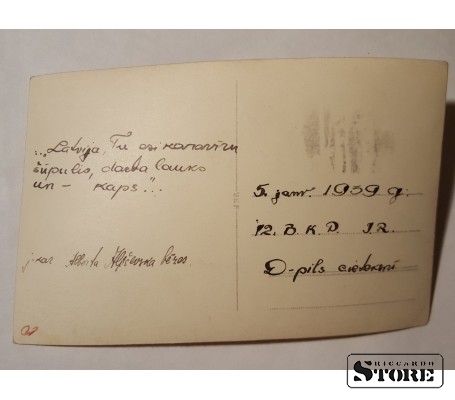 „Latvija, Tu esi karavīru
šūpulis, darba lauks
un - kaps"...
j-kar. Alberta bēres.
5. janv. 1939 g.
12. B. K. P. I.R.
D-pils cietoksnī
RICCARDO
STORE